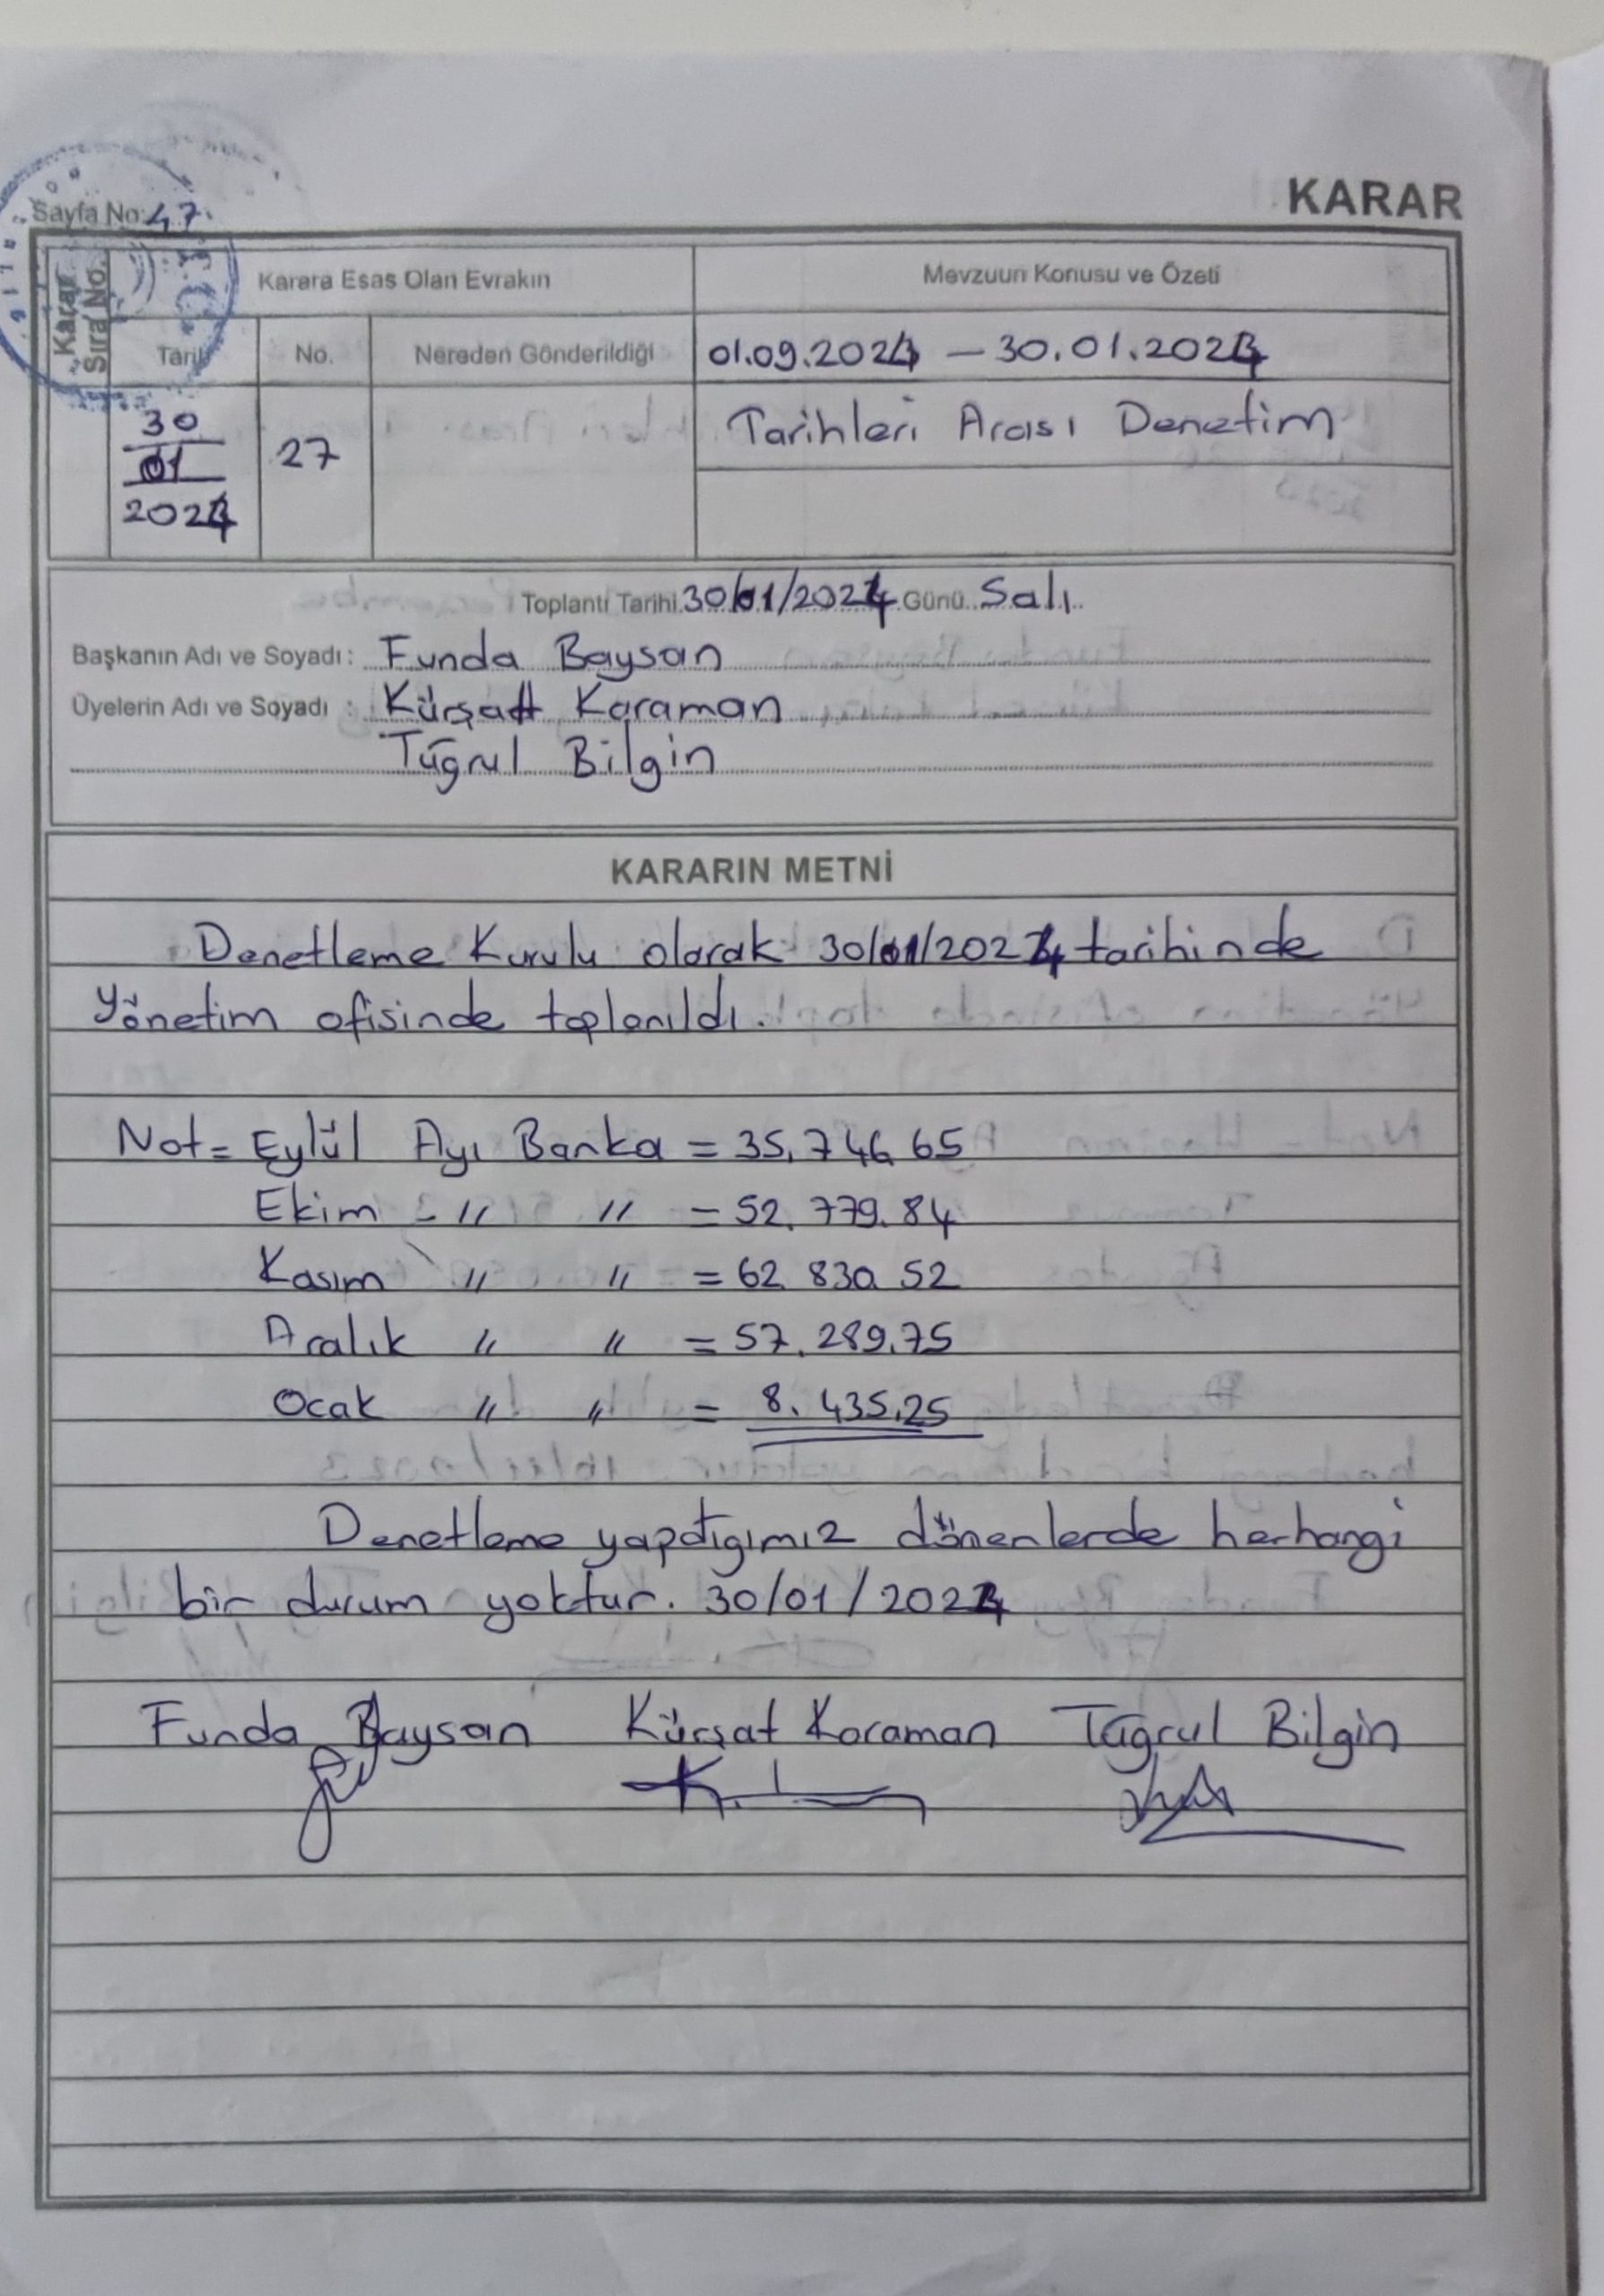 KARAR
Sayfa No: 47
Karar Sıra No.
Karara Esas Olan Evrakın
Mevzuun Konusu ve Özeti
Tarih
No.
Nereden Gönderildiği
01.09.2024 — 30.01.2024
Tarihleri Arası Denetim
30
01
2024
27
Toplantı Tarihi 30/01/2024 Günü Salı
Başkanın Adı ve Soyadı : Funda Baysan
Üyelerin Adı ve Soyadı : Kürşatt Karaman
Tuğrul Bilgin
KARARIN METNİ
Denetleme Kurulu olarak 30/01/2024 tarihinde
Yönetim ofisinde toplanıldı.
Not = Eylül Ayı Banka = 35.746.65
Ekim - " " = 52.779.84
Kasım " " = 62 830.52
Aralık " " = 57.289.75
Ocak " " = 8.435.25
Denetleme yapdığımız dönenlerde herhangi
bir durum yoktur. 30/01/2024
Funda Baysan Kürşat Karaman Tuğrul Bilgin